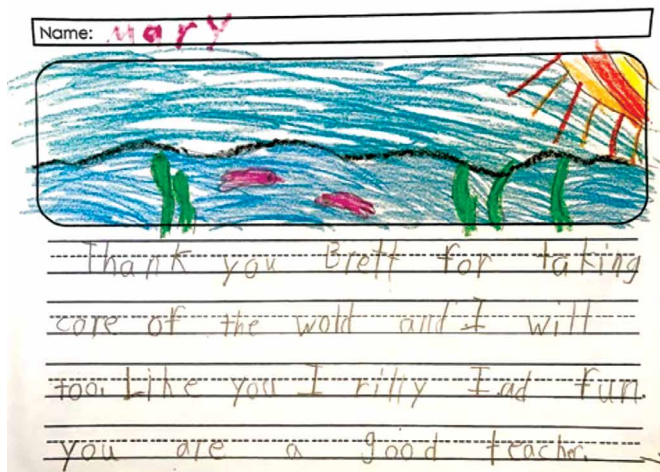 Name: Mary
Thank you Brett for taking
care of the wold and I will
too. Like you I rilly I ad fun.
you are a good teacher.